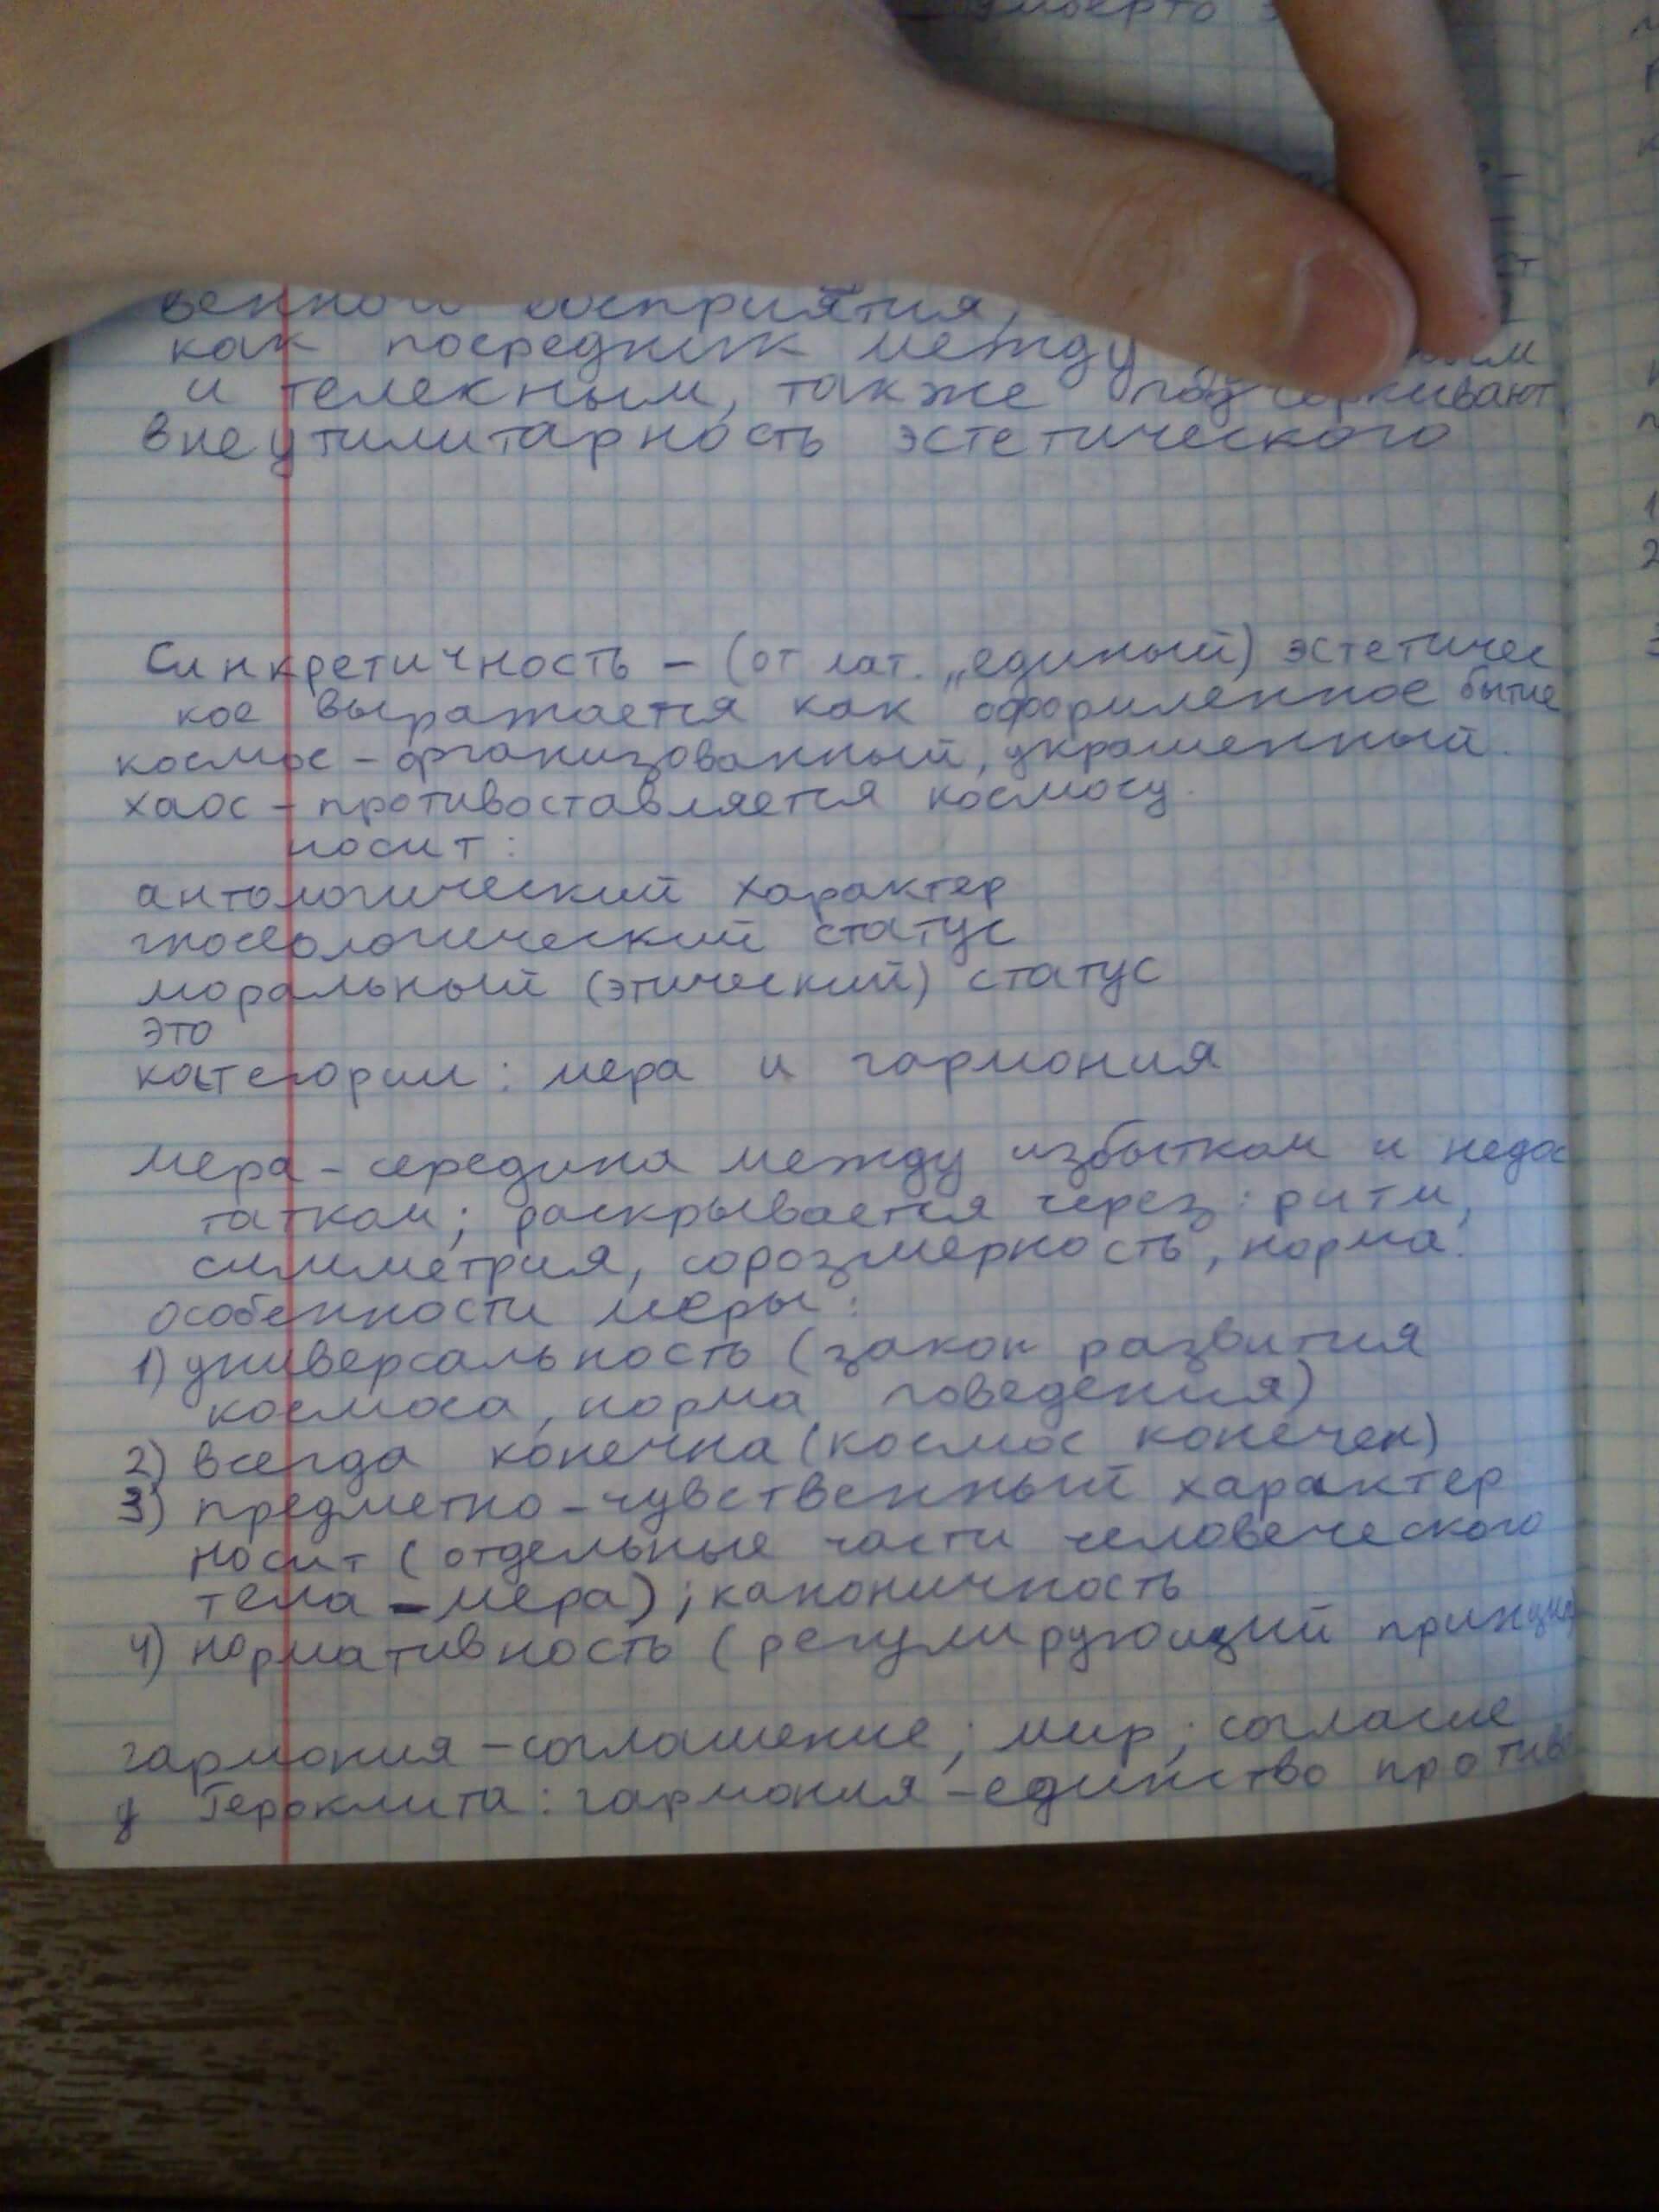 умберто
венного восприятия,
как посредник между
и телекным, также подчеркивают
внеутилитарность эстетического
Синкретичность – (от лат. „единый) эстетичес
кое выражается как оформленное бытие
космос – организованный, украшенный.
хаос – противоставляется космосу.
носит:
антологический характер
гносеологический статус
моральный (этический) статус
это
категории: мера и гармония
мера – середина между избытком и недос
татком; раскрывается через: ритм,
симметрия, сорозмерность, норма.
особенности меры:
1) универсальность (закон развития
космоса, норма поведения)
2) всегда конечна (космос конечен)
3) предметно-чувственный характер
носит (отдельные части человеческого
тела – мера); каноничность
4) нормативность (регулирующий принцип)
гармония – соглашение; мир; согласие
у Гераклита: гармония – единство противо